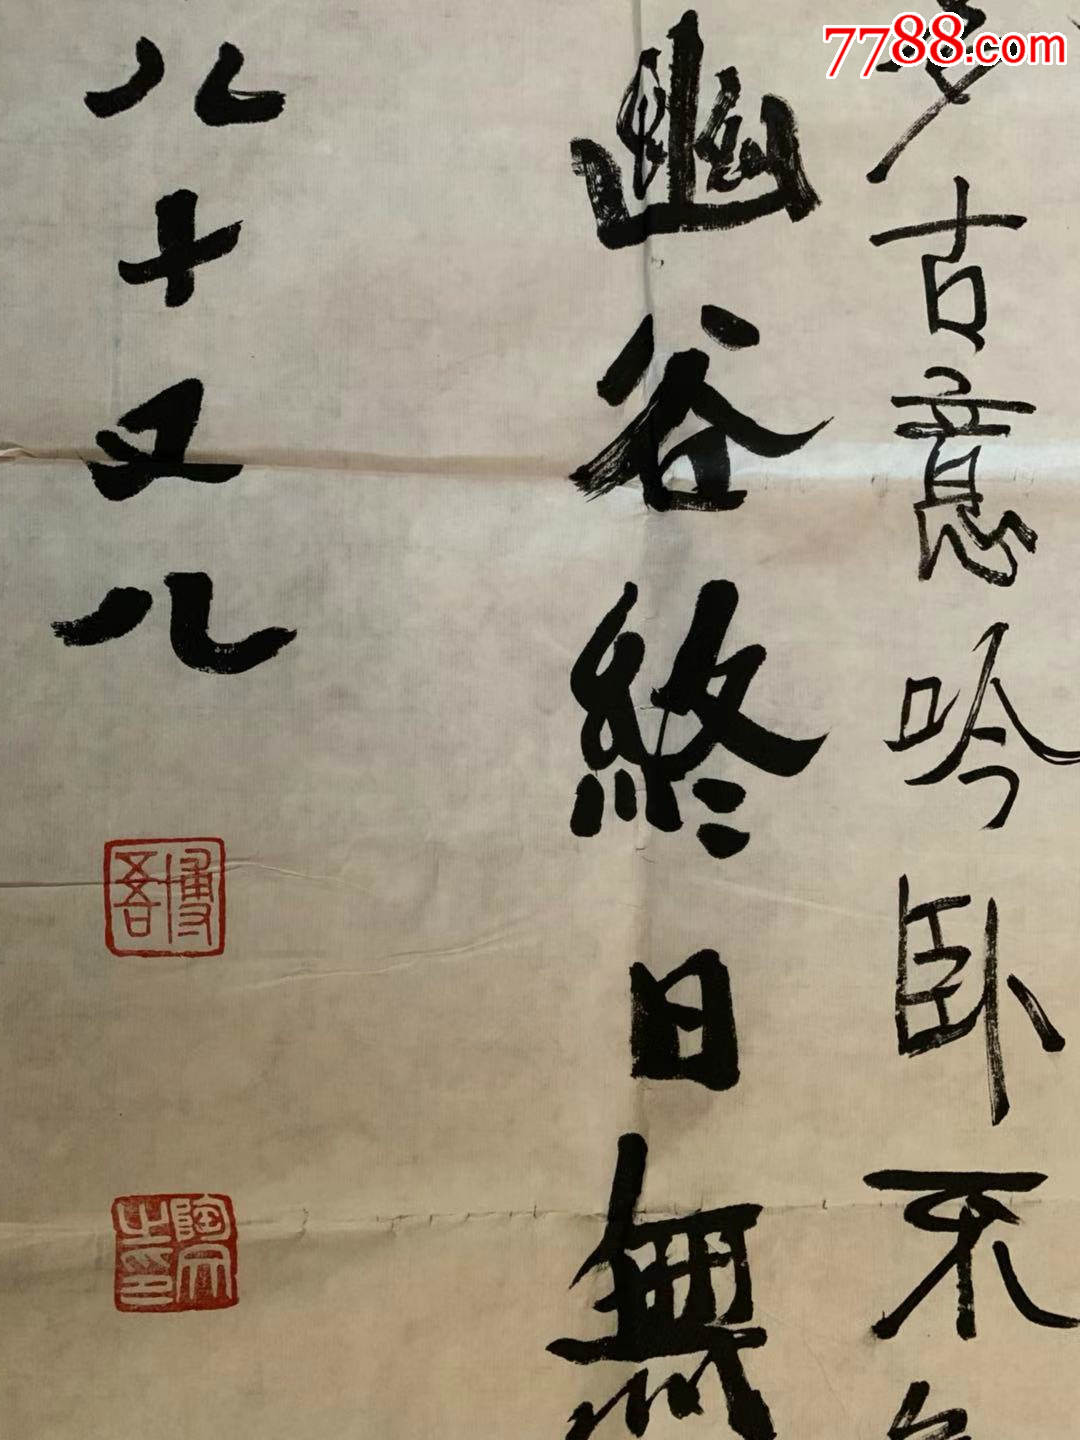 7788.com
古意吟卧不
幽谷終日無
八十又八
博吾
之印